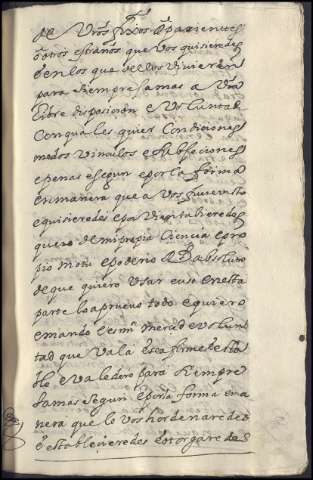 de vros hixos o parientes
o otros estraños que vos quisieredes
o en los que de llos vivieren
para siempre jamas a vra
libre disposicion e voluntad
con quales quier condiciones
modos vinculos e
e penas segun e por la forma
e manera que a vos
e quisieredes e por bien tubieredes
quero de mi propia ciencia e pro
pio motu e poderio Rl absoluto
de que quiero usar e uso en esta
parte lo apruevo todo e quiero
e mando e es mi merced e volun
tad que vala e sea firme esta
ble e valedero para siempre
jamas segun e por la forma e ma
nera que lo vos hordenaredes
o establecieredes e otorgaredes